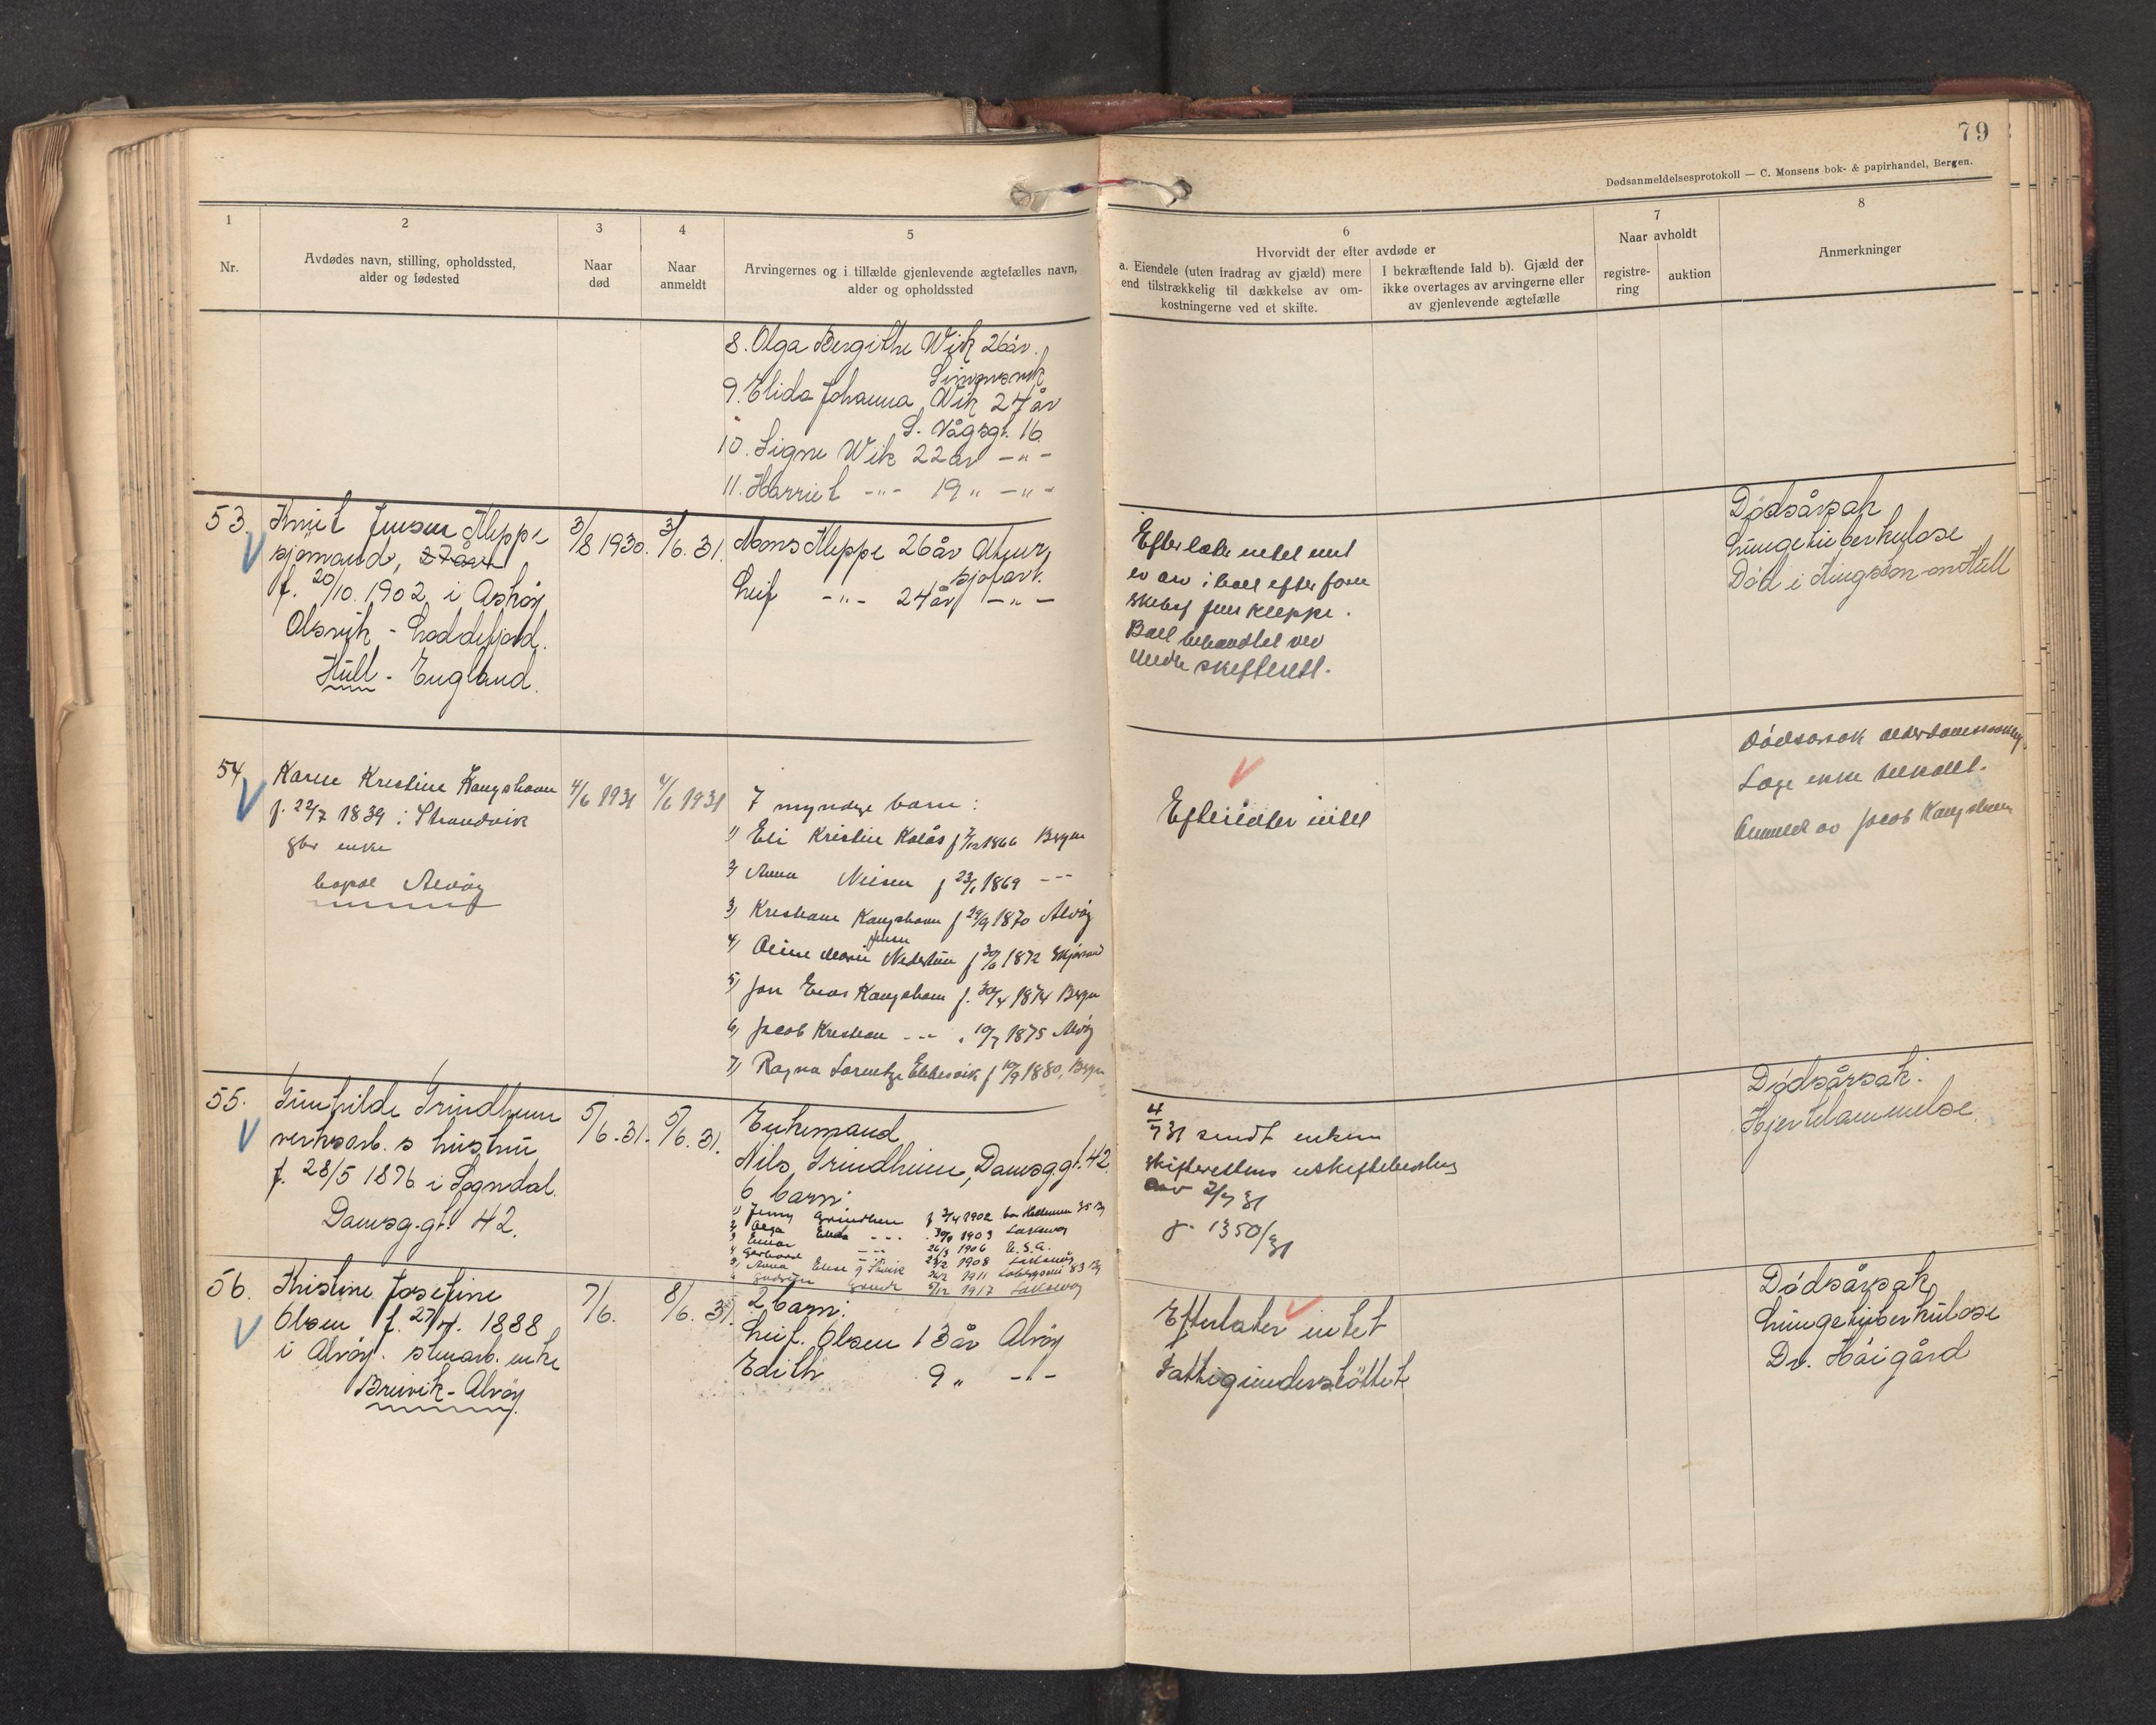 79
Dødsanmeldelsesprotokoll — C. Monsens bok- & papirhandel, Bergen.
1
Nr.
2
Avdødes navn, stilling, opholdssted,
alder og fødested
3
Naar
død
4
Naar
anmeldt
5
Arvingernes og i tilfælde gjenlevende ægtefælles navn,
alder og opholdssted
6
Hvorvidt der efter avdøde er
a. Eiendele (uten fradrag av gjæld) mere
end tilstrækkelig til dækkelse av om-
kostningerne ved et skifte.
I bekræftende fald b). Gjæld der
ikke overtages av arvingerne eller
av gjenlevende ægtefælle
7
Naar avholdt
registre-
ring
auktion
8
Anmerkninger
8. Olga Bergithe Wik 26 år.
Simonsvik
9. Elida Johanna Wik 24 år
S. Vågsgt. 16
10. Signe Wik 22 år -"-
11. Harriet -"- 19 " -"-
53.
Knut Jensen Kleppe
sjømand, 27 år
f. 20/10. 1902, i Askøy
Olsvik - Loddefjord.
Hull - England.
3/8 1930.
3/6. 31.
Mons Kleppe 26 år
sjøfart.
Leif -"- 24 år -"-
Efterlater intet unt
er arv i boet efter
Jens Kleppe.
Boet behandlet ved
skifterett.
Dødsårsak
Lungetuberkulose
Død i Kingston on Hull
54
Karen Kristine Kongshavn
f. 22/7 1839 i Strandvik
gbr enke
bopæl Alvøy
4/6 1931
4/6 1931
7 myndige barn:
1) Eli Kristine Kolås f 1866 Bergen
2) Anna Nilsen f 23/1 1869 -"-
3) Kristiane Kongshavn f 29/9 1870 Alvøy
4) Oline Marie Nedretun f 1872
5) Jon Kongshavn f. 30/4 1874 Bergen
6) Jacob Kristian -"- " 10/7 1875 Alvøy
7) Ragna Lorentze Ebbesvik f 10/9 1880, Bergen
Efterlater intet
Dødsårsak alderdomssvakhet
Læge ikke tilkaldt.
Anmeldt av Jacob Kongshavn
55.
Gunhilde Grindheim
verksarb.s hustru
f. 28/5 1876 i Sogndal.
Damsg.gt. 42.
5/6. 31.
5/6. 31.
Enkemand
Nils Grindheim, Damsg.gt. 42.
6 barn:
1) Jenny Grindheim f 2/4 1902
2 Olga -"- 1903 Laksevåg
3 Einar -"- 26/3 1906 U.S.A.
4 -"- 1908 Laksevåg
5) Anna Else 1911
6 Gudrun 5/12 1917 Laksevåg
4/7 31 sendt enkem
skifterettens uskiftebevilling
av 2/7 31
j. 1350/31
Dødsårsak:
Hjertelammelse.
56.
Kristine Josefine
Olsen f. 27/4. 1888
i Alvøy. stenarb. enke
Breivik - Alvøy.
7/6.
8/6. 31.
2 barn:
Leif Olsen 13 år Alvøy
Edith 9 " -"-
Efterlater intet
Fattigunderstøttet
Dødsårsak
Lungetuberkulose
Dr. Høigård